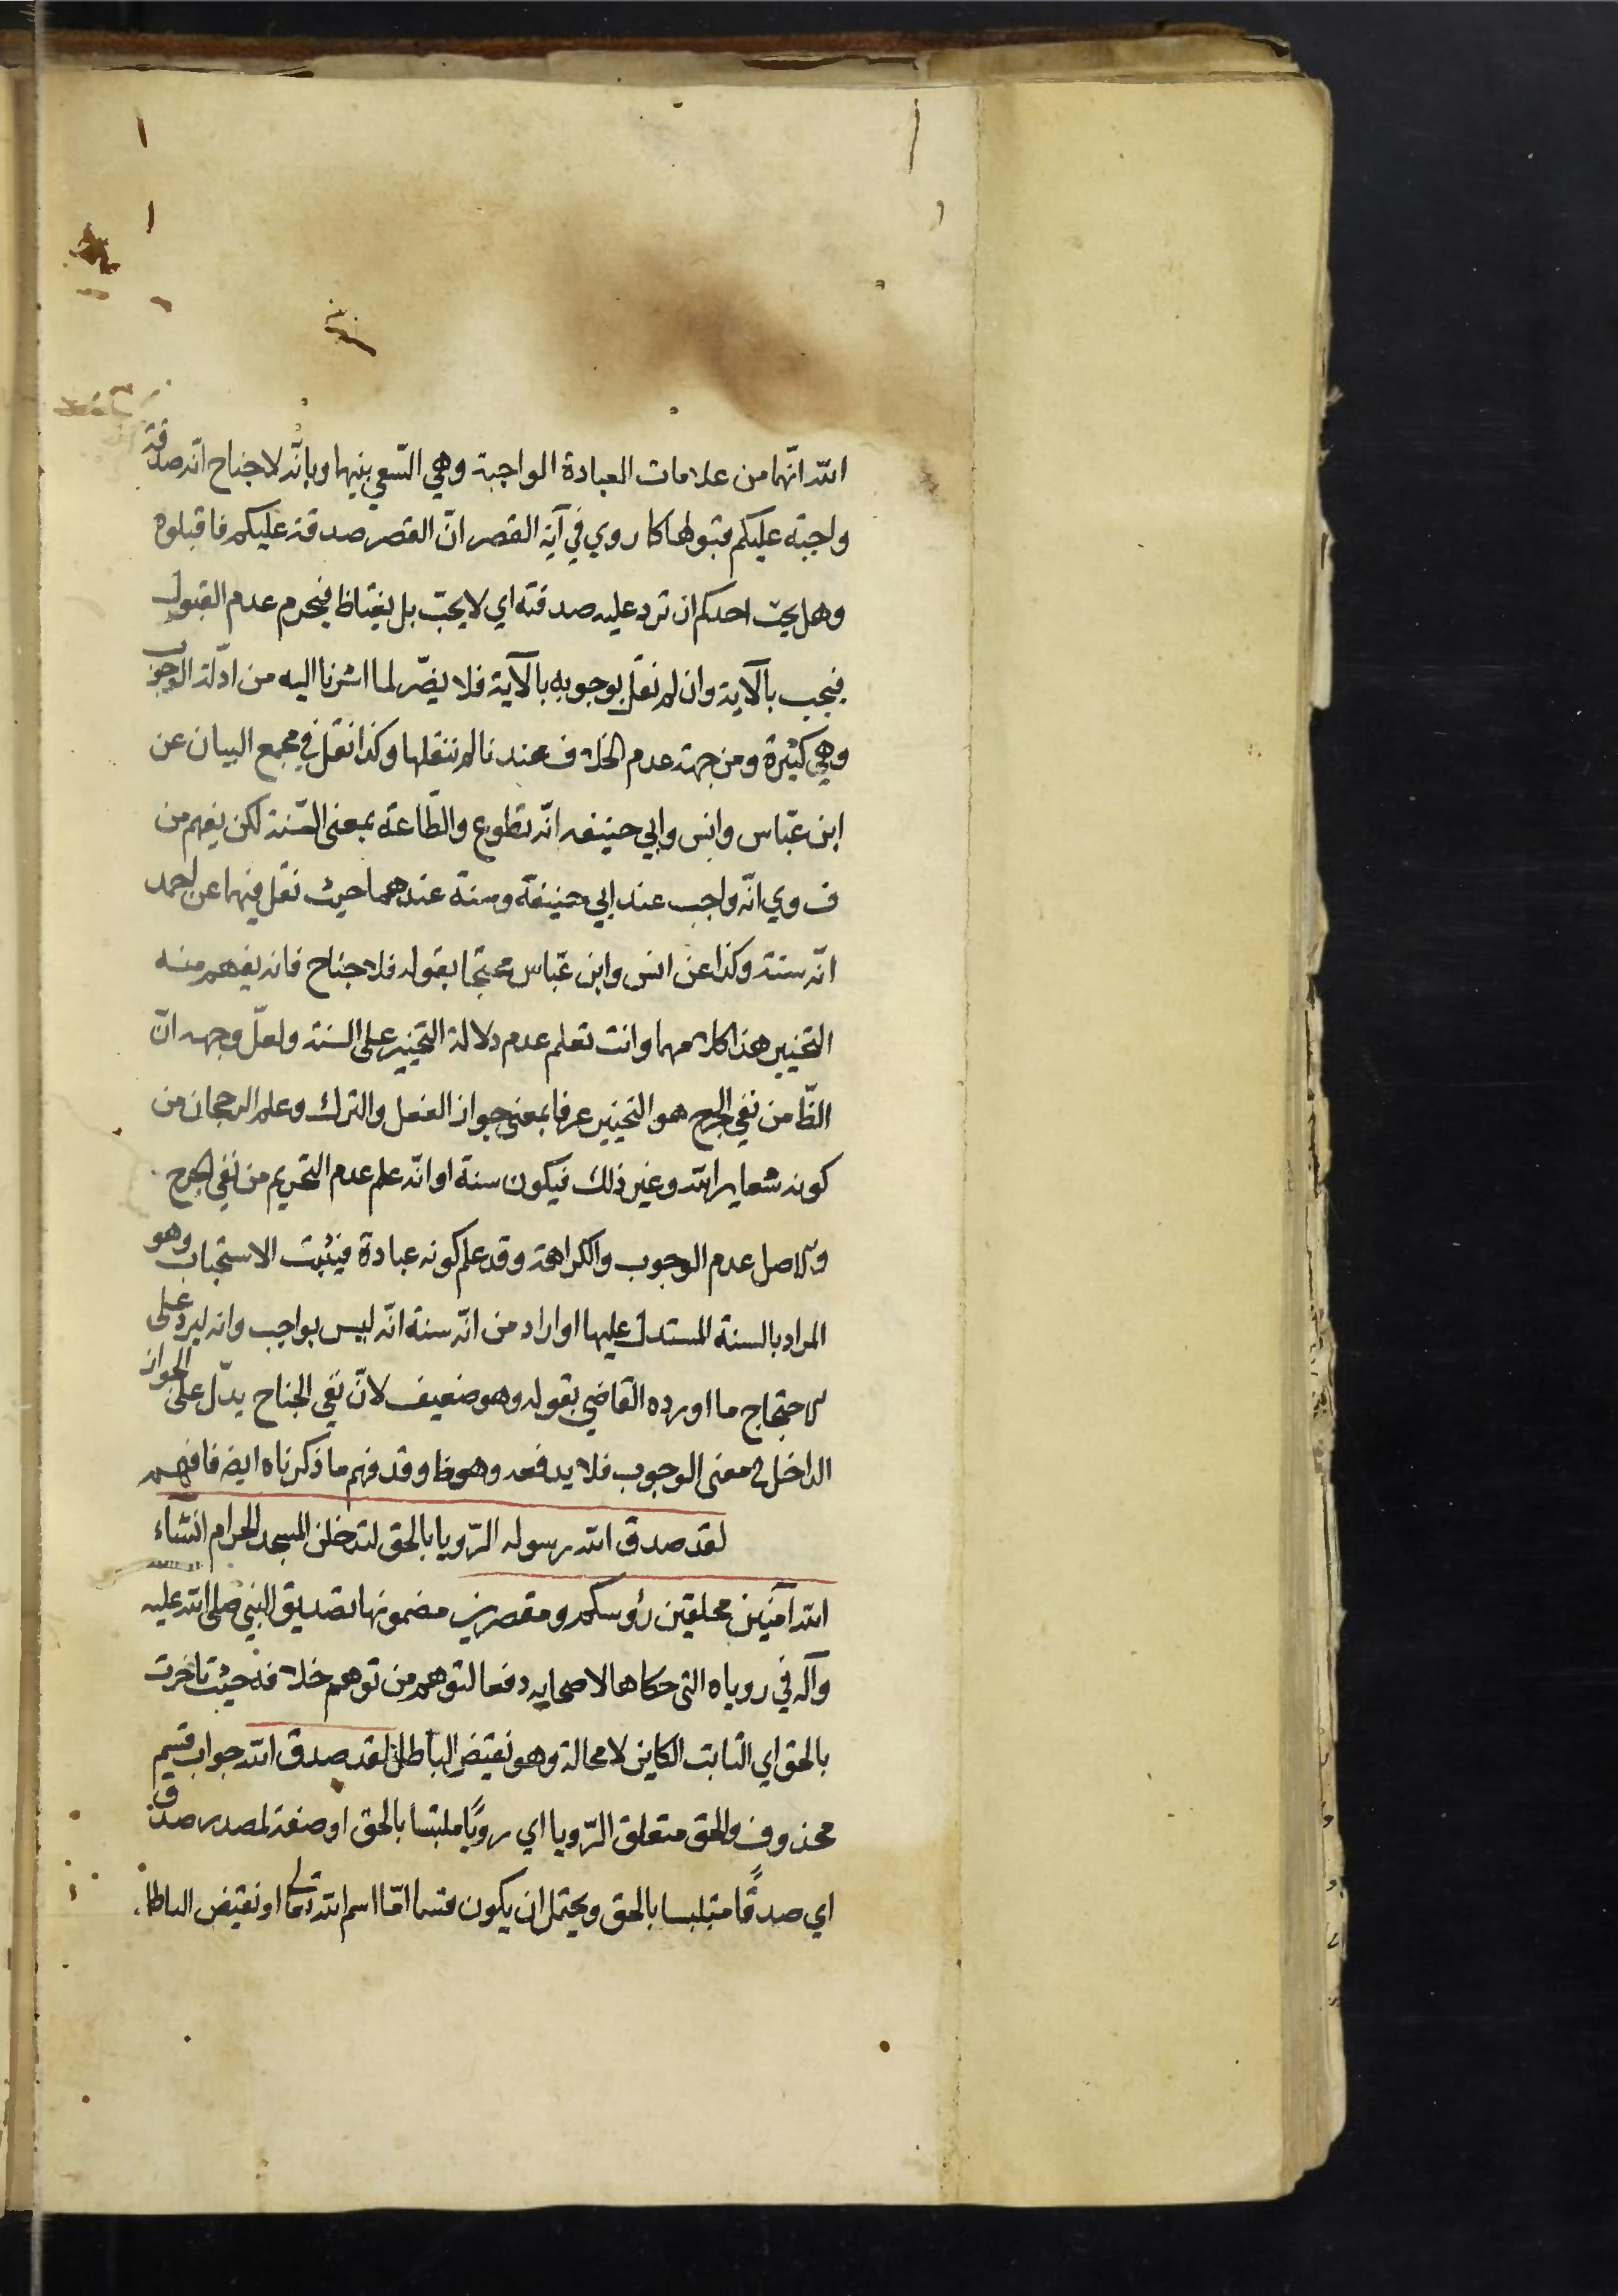 الله انّهما من علامات العبادة الواجبة وهي السّعي بينهما وبانّه لا جناح انّه صدقة
واجبة عليكم قبولها كما روي في آية القصر انّ القصر صدقة عليكم فاقبلوه
وهل يحبّ احدكم ان ترد عليه صدقته اي لا يحبّ بل يغتاظ فيحرم عدم القبول
فيجب بالآية وان لم نقل بوجوبه بالآية فلا يضّر لما اشرنا اليه من ادّلة الوجوب
وهي كثيرة ومن جهة عدم الخلاف عندنا لم ننقلها وكذا نقل في مجمع البيان عن
ابن عبّاس وانس وابي حنيفه انّه تطوع والطّاعة بمعنى السّنة لكن يفهم من
ف وي انّه واجب عند ابي حنيفة وسنة عندهما حيث نقل فيهما عن احمد
انّه سنة وكذا عن انس وابن عبّاس محتجا بقوله فلا جناح فانه يفهم منه
التخيير هذا كلامهما وانت تعلم عدم دلالة التخيير على السنة ولعلّ وجهه انّ
الظّا من نفي الحرج هو التخيير عرفا بمعنى جواز الفعل والترك وعلم الرجحان من
كونه شعاير الله وغير ذلك فيكون سنة او انّه علم عدم التحريم من نفي الحرج
والاصل عدم الوجوب والكراهة وقد علم كونه عبادة فيثبت الاستحباب وهو
المراد بالسنة المستدل عليها او اراد من انّه سنة انّه ليس بواجب وانه ليرد على
الاحتجاج ما اورده القاضي بقوله وهو ضعيف لانّ نفي الجناح يدّل على الجواز
الداخل في معنى الوجوب فلا يدفعه وهو ظا وقد فهم ما ذكرناه ايضا فافهم
لقد صدق الله رسوله الرّويا بالحق لتدخلن المسجد الحرام انشاء
الله آمنين محلقين رؤسكم ومقصرين مضمونها تصديق النبي صلى الله عليه
وآله في روياه التى حكاها لاصحابه دفعا لتوهم من توهم خلافه حيث تاخرت
بالحق اي الثابت الكاين لا محالة وهو نقيض الباطل لقد صدق الله جواب قسم
محذوف والحق متعلق الرّويا اي رويًا ملتبسا بالحق او صفة لمصدر صدق
اي صدقًا متلبسا بالحق ويحتمل ان يكون قسما امّا اسم الله تعالى او نقيض الباطل